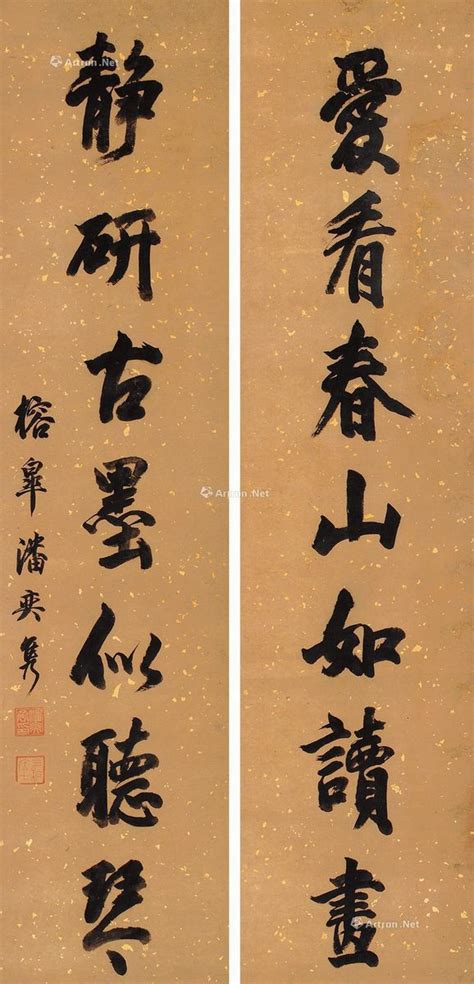 愛看春山如讀畫
靜研古墨似聽琴
榕皋潘奕隽
Artron.Net
Artron.Net
Artron.Net
Artron.Net